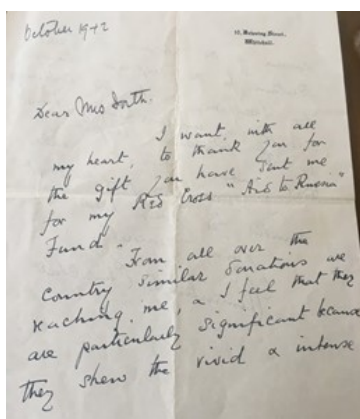 October 1942
10, Downing Street,
Whitehall.
Dear Mrs
I want, with all
my heart, to thank you for
the gift you have sent me
for my Red Cross "Aid to Russia"
Fund".
From all over the
country similar donations are
reaching me, & I feel that they
are particularly significant because
they shew the vivid & intense